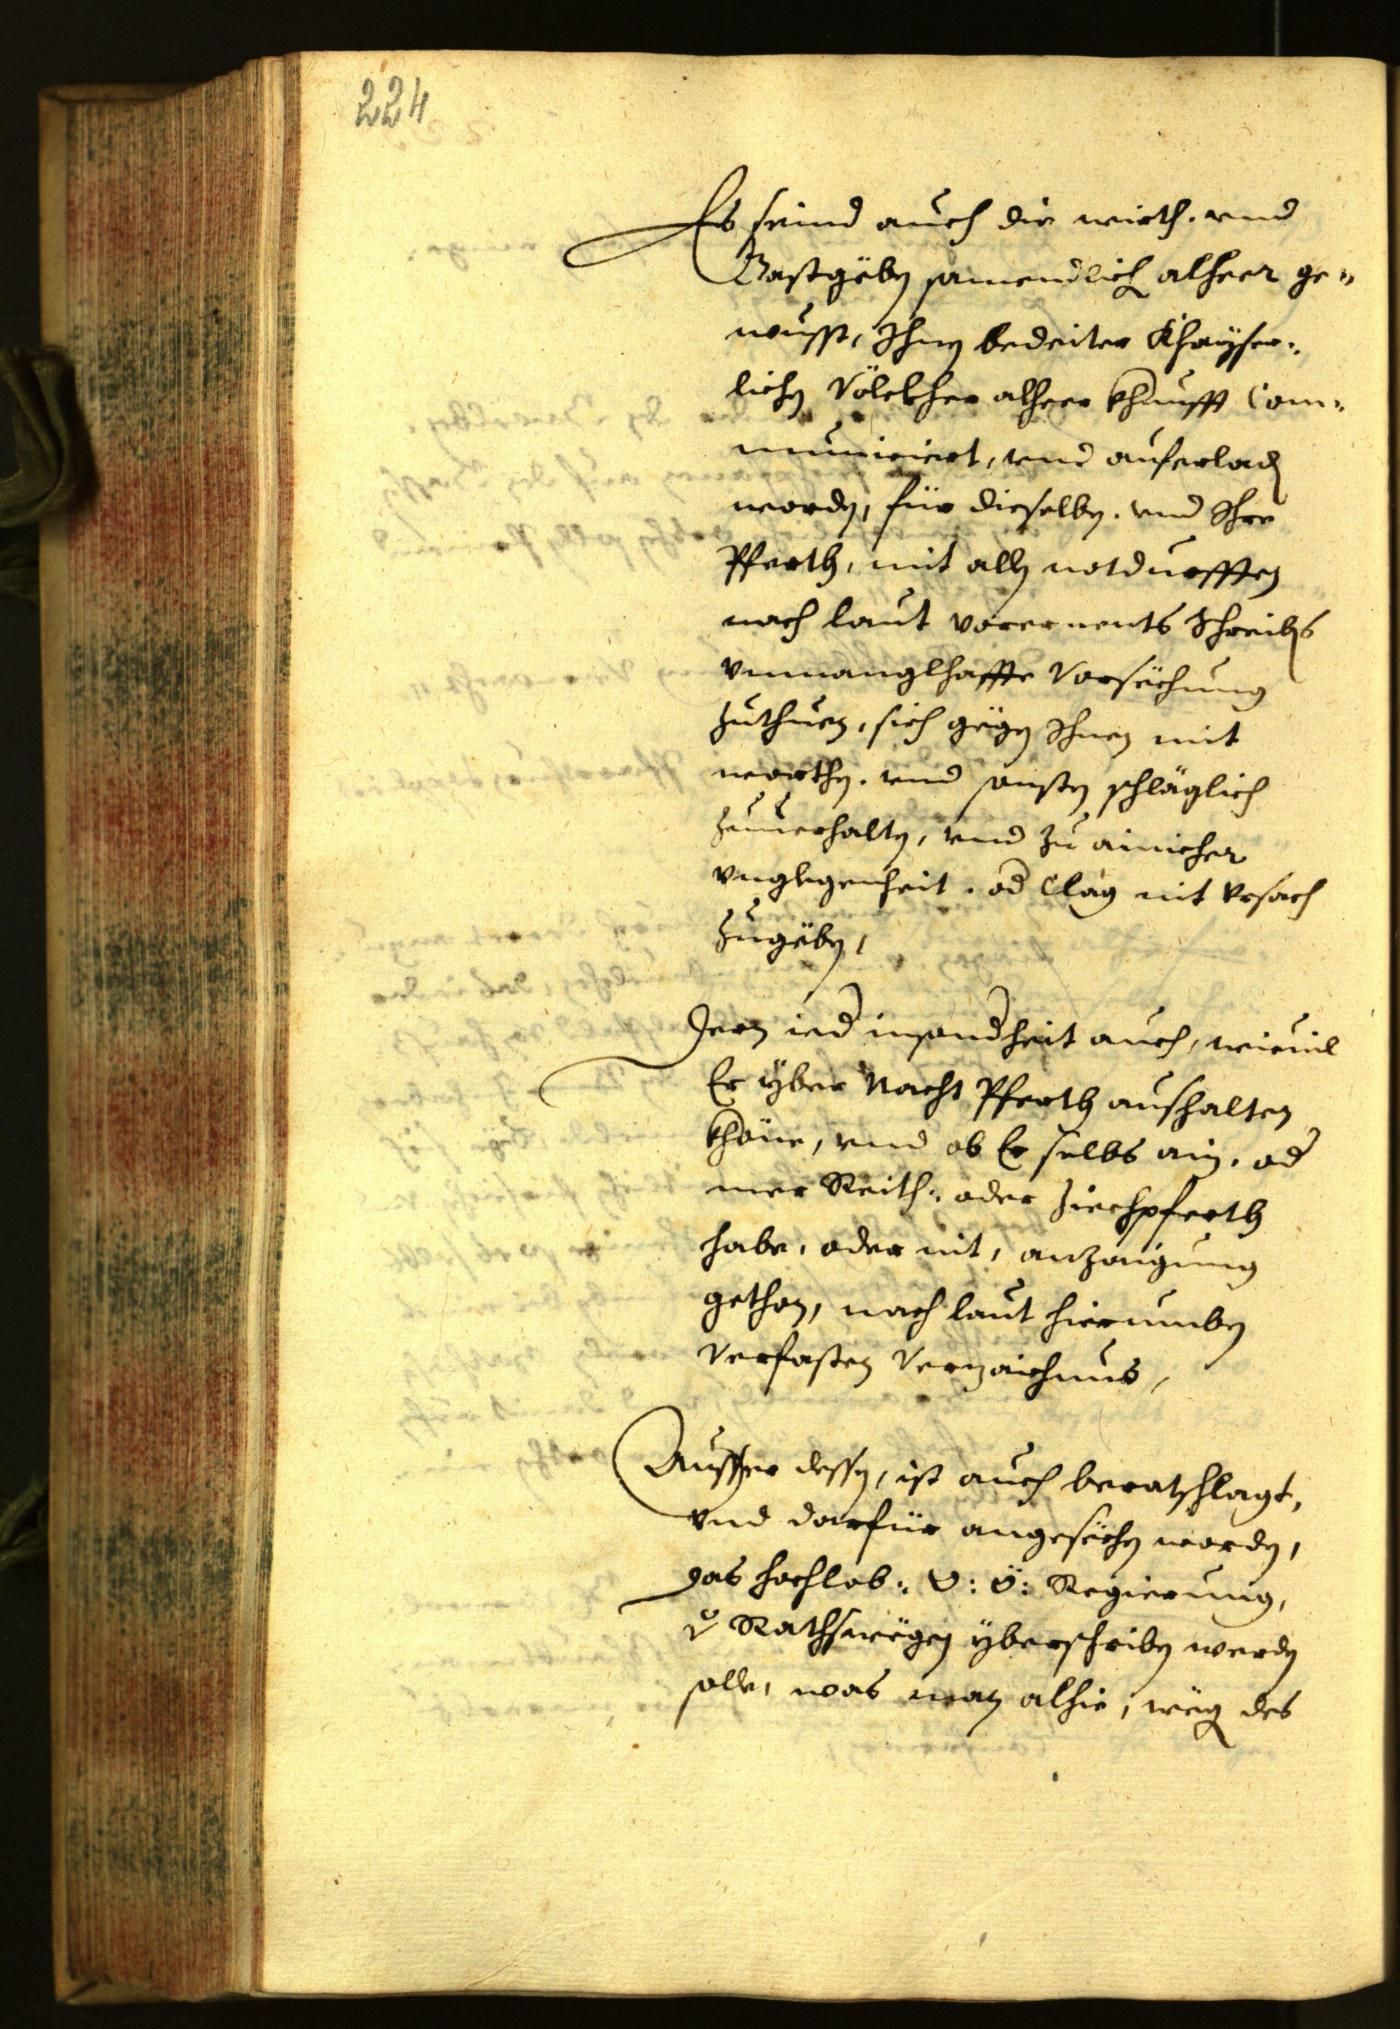 224
Es seind auch die wirth. vnd
Gastgëben samendlich alheer ge„
wüsst, Ihnen bedeiter Khaÿser:
lichen Völckher alheer khunfft Com„
municiert, vnd auferladen
worden, für dieselben. vnd Ihre
Pferth, mit allen notdurfften
nach laut vorernents Schreibens
vnmanglhaffte Vorsëchung
zuthuen, sich gëgen Ihnen mit
worthen. vnd sonsten
zuuerhalten, vnd zu ainicher
vnglegenheit. od Clag nit vrsach
zugëben,
Jeen ied insondheit auch, wieuil
Er ÿber Nacht Pferth aushalten
khöne, vnd ob Er selbs ain. od
mer Reith: oder ziechpferth
habe, oder nit, anzaigung
gethan, nach laut hierumben
Verfasten Verzaichnus,
Ausser dessen, ist auch berathschlagt,
vnd darfür angesëchen worden,
das hochlob: O: Ö: Regierung,
Rathswëgen ÿberschriben werden
solle, was man alhie, wëgen des